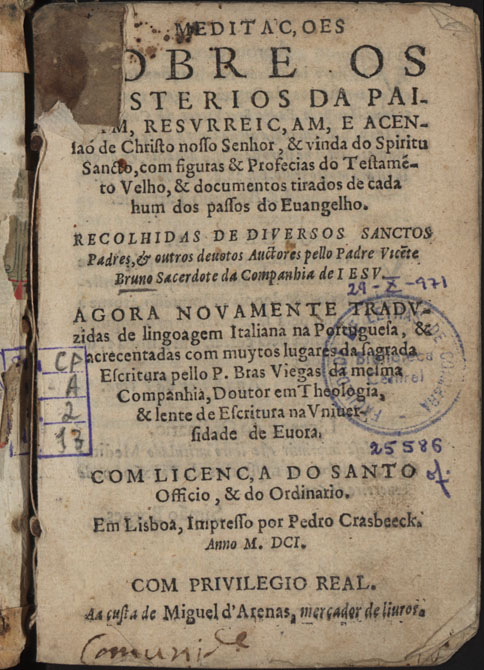 MEDITAC,OES
OBRE OS
STERIOS DA PAI-
M, RESVRREIC,AM, E ACEN-
saõ de Christo nosso Senhor, & vinda do Spiritu
Sancto, com figuras & Profecias do Testamẽ-
to Velho, & documentos tirados de cada
hum dos passos do Euangelho.
RECOLHIDAS DE DIVERSOS SANCTOS
Padres, & outros deuotos Auctores pello Padre Vicẽte
Bruno Sacerdote da Companhia de IESV.
29-X-971
AGORA NOVAMENTE TRADV-
zidas de lingoagem Italiana na Portuguesa, &
acrecentadas com muytos lugares da sagrada
Escritura pello P. Bras Viegas da mesma
Companhia, Doutor em Theologia,
& lente de Escritura na Vniuer-
sidade de Euora.
CF
A
2
13
Biblioteca
Central
25586
COM LICENC,A DO SANTO
Officio, & do Ordinario.
Em Lisboa, Impresso por Pedro Crasbeeck.
Anno M. DCI.
COM PRIVILEGIO REAL.
Aa custa de Miguel d'Arenas, mercador de liuros.